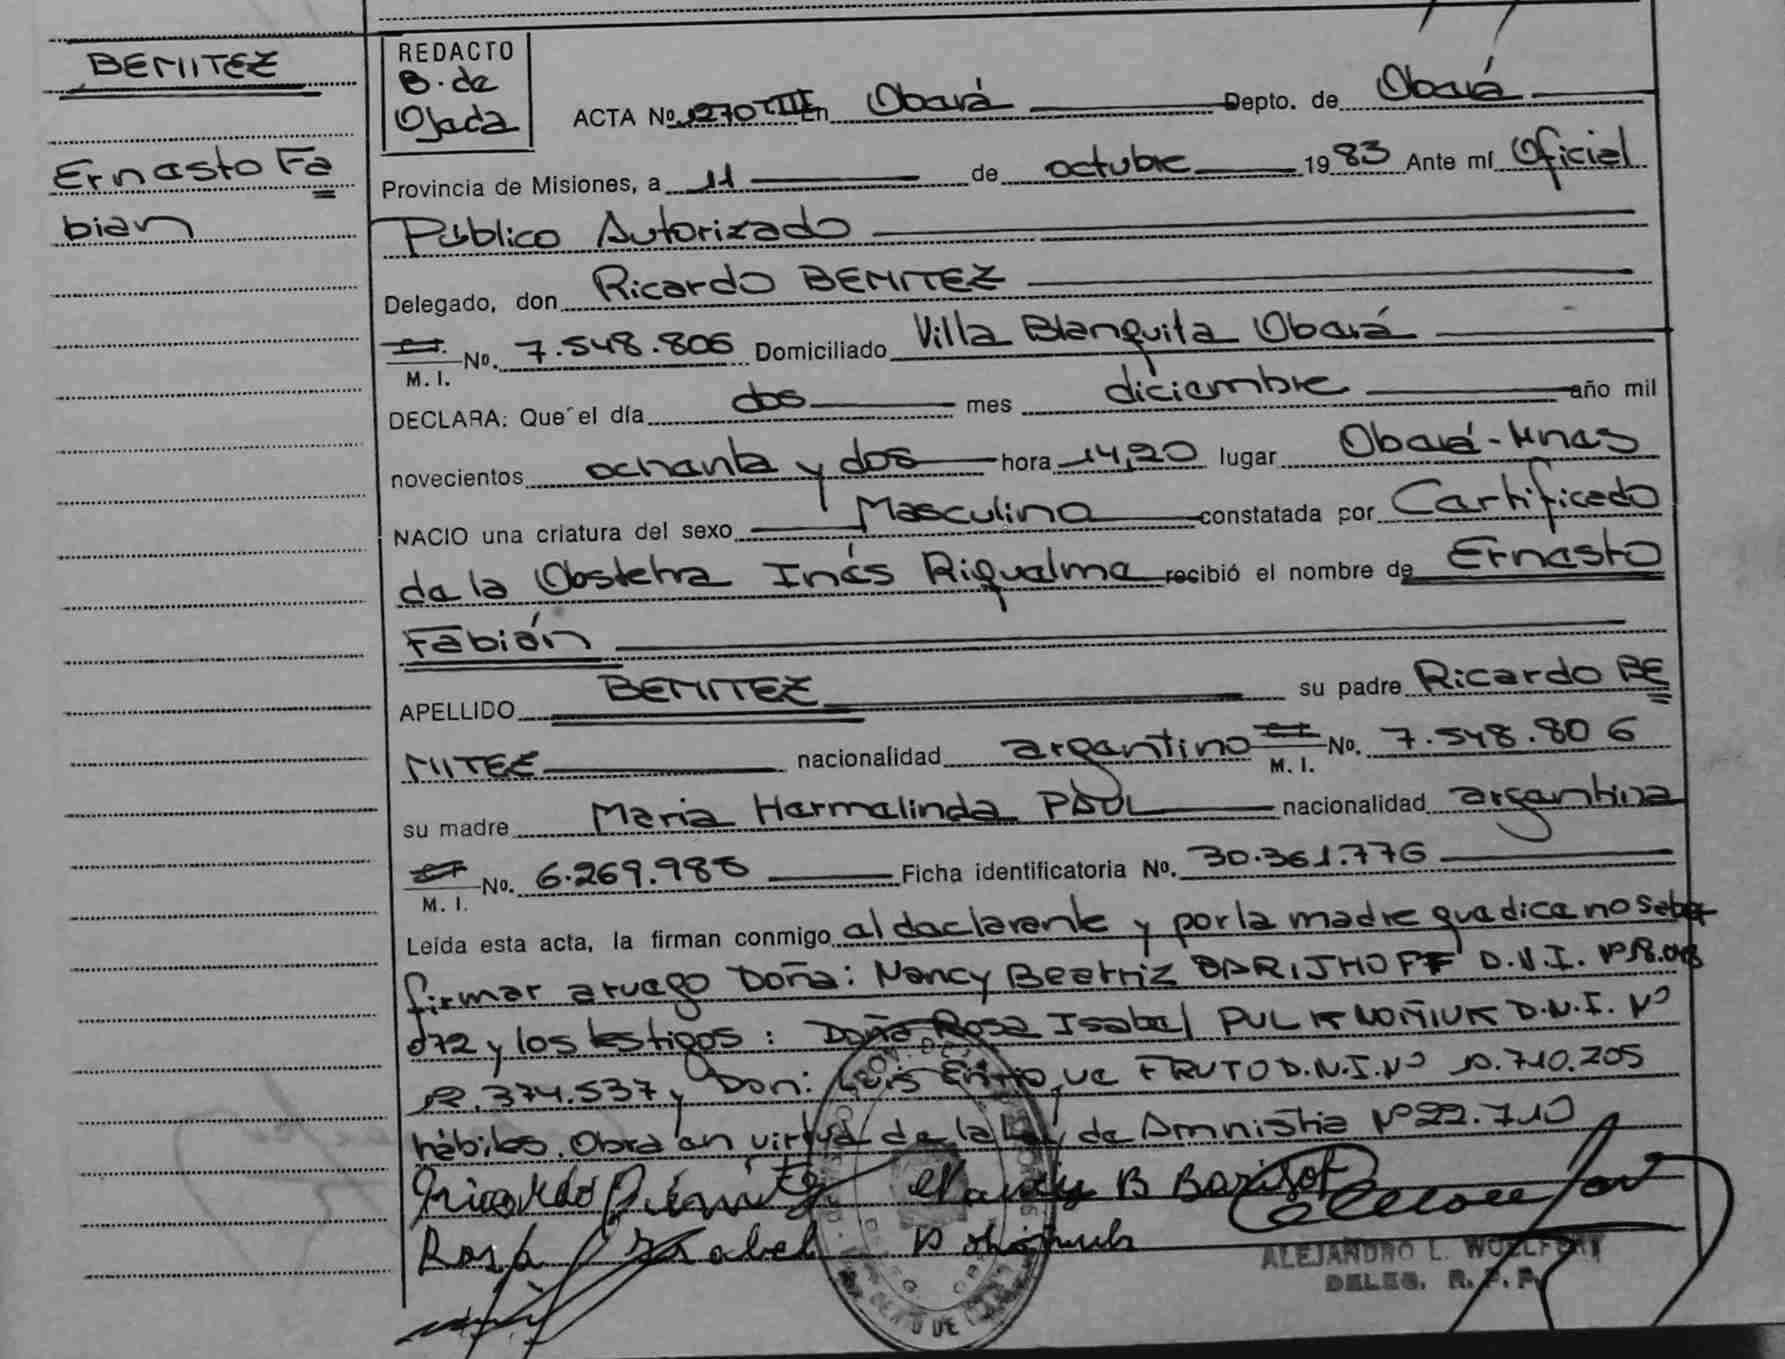 BENITEZ
Ernesto Fa
bian
REDACTO
B. de
Ojeda
ACTA No. 1270 TIII En Oberá Depto. de Oberá
Provincia de Misiones, a 11 de octubre 1983 Ante mí Oficial
Público Autorizado
Delegado, don Ricardo BENITEZ
C.I. M. I. No. 7.548.806 Domiciliado Villa Blanquita Oberá
DECLARA: Que el día dos mes diciembre año mil
novecientos ochenta y dos hora 14,20 lugar Oberá-Mnes
NACIO una criatura del sexo Masculino constatada por Certificado
de la Obstetra Inés Riquelme recibió el nombre de Ernesto
Fabián
APELLIDO BENITEZ su padre Ricardo BE
NITEZ nacionalidad argentino C.I. M. I. No. 7.548.806
su madre Maria Hermelinda PAUL nacionalidad argentina
C.I. M. I. No. 6.269.988 Ficha identificatoria No. 30.361.776
Leída esta acta, la firman conmigo el declarante y por la madre que dice no saber
firmar a ruego Doña: Nancy Beatriz BARIJHOFF D.N.I. Nº
072 y los testigos: Doña Rosa Isabel D.N.I. Nº
12.374.537 y Don: Luis Enrique FRUTO D.N.I. Nº 10.710.205
hábiles. Obra en virtud de la Ley de Amnistia Nº 22.710
Ricardo Benitez Nancy B
Rosa Isabel
ALEJANDRO L. WOELFERT
DELEG. R. P. P.